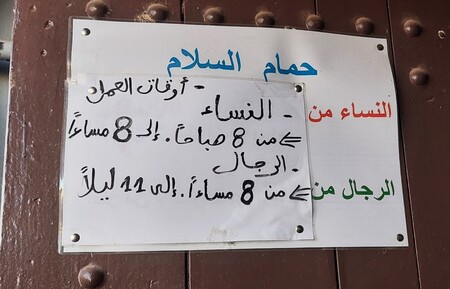 حمام السلام
- أوقات العمل
النساء من
- النساء
من 8 صباحاً. إلى 8 مساءاً
- الرجال
الرجال من
من 8 مساءاً. إلى 11 ليلاً